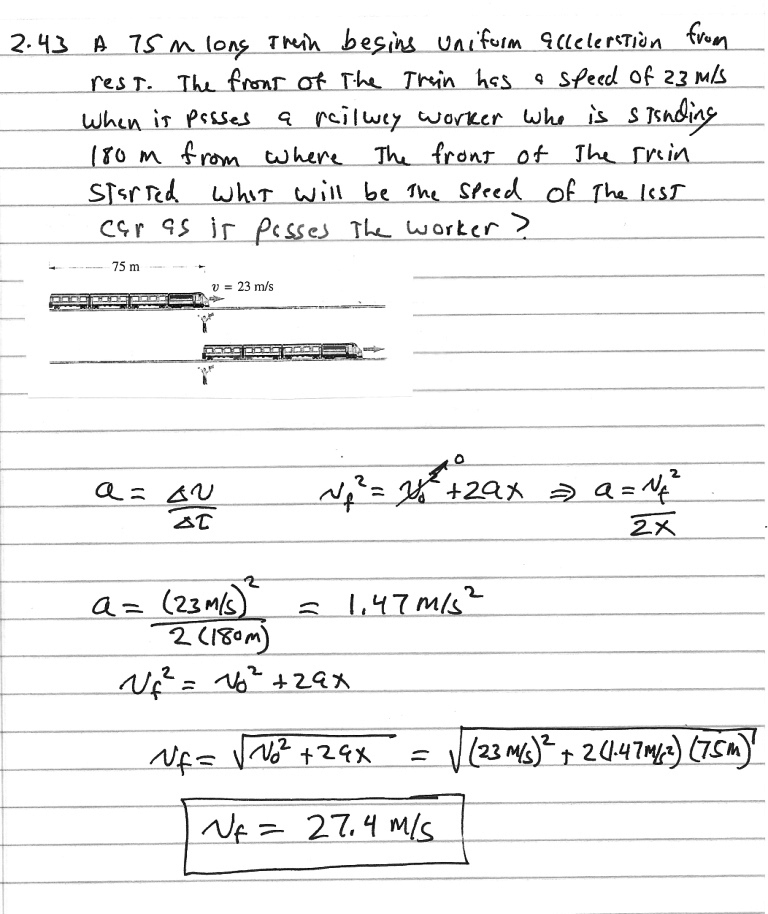 2.43 A 75 m long Train begins Uniform acceleration from
rest. The front of The Train has a speed of 23 m/s
when it passes a railway worker who is standing
180 m from where The front of The Train
Started What will be the speed of The last
car as it passes The worker?
75 m
v = 23 m/s
a = Δv/Δt    v_f² = v₀²→0 + 2ax ⇒ a = v_f²/2x
a = (23 m/s)²/2(180m) = 1.47 m/s²
v_f² = v₀² + 2ax
v_f = √(v₀² + 2ax) = √((23 m/s)² + 2(1.47 m/s²)(75m))
v_f = 27.4 m/s